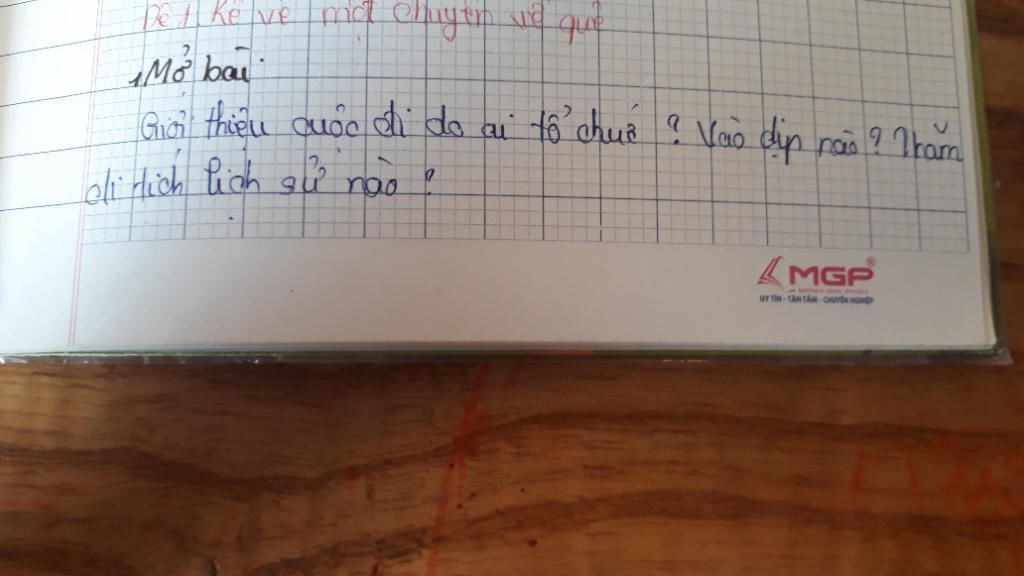 Đề 1 Kể về một chuyến về quê
1, Mở bài
Giới thiệu cuộc đi do ai tổ chức ? Vào dịp nào ? Thăm
di tích lịch sử nào ?
MGP®
MINH GIA PHÁT
UY TÍN - TẬN TÂM - CHUYÊN NGHIỆP